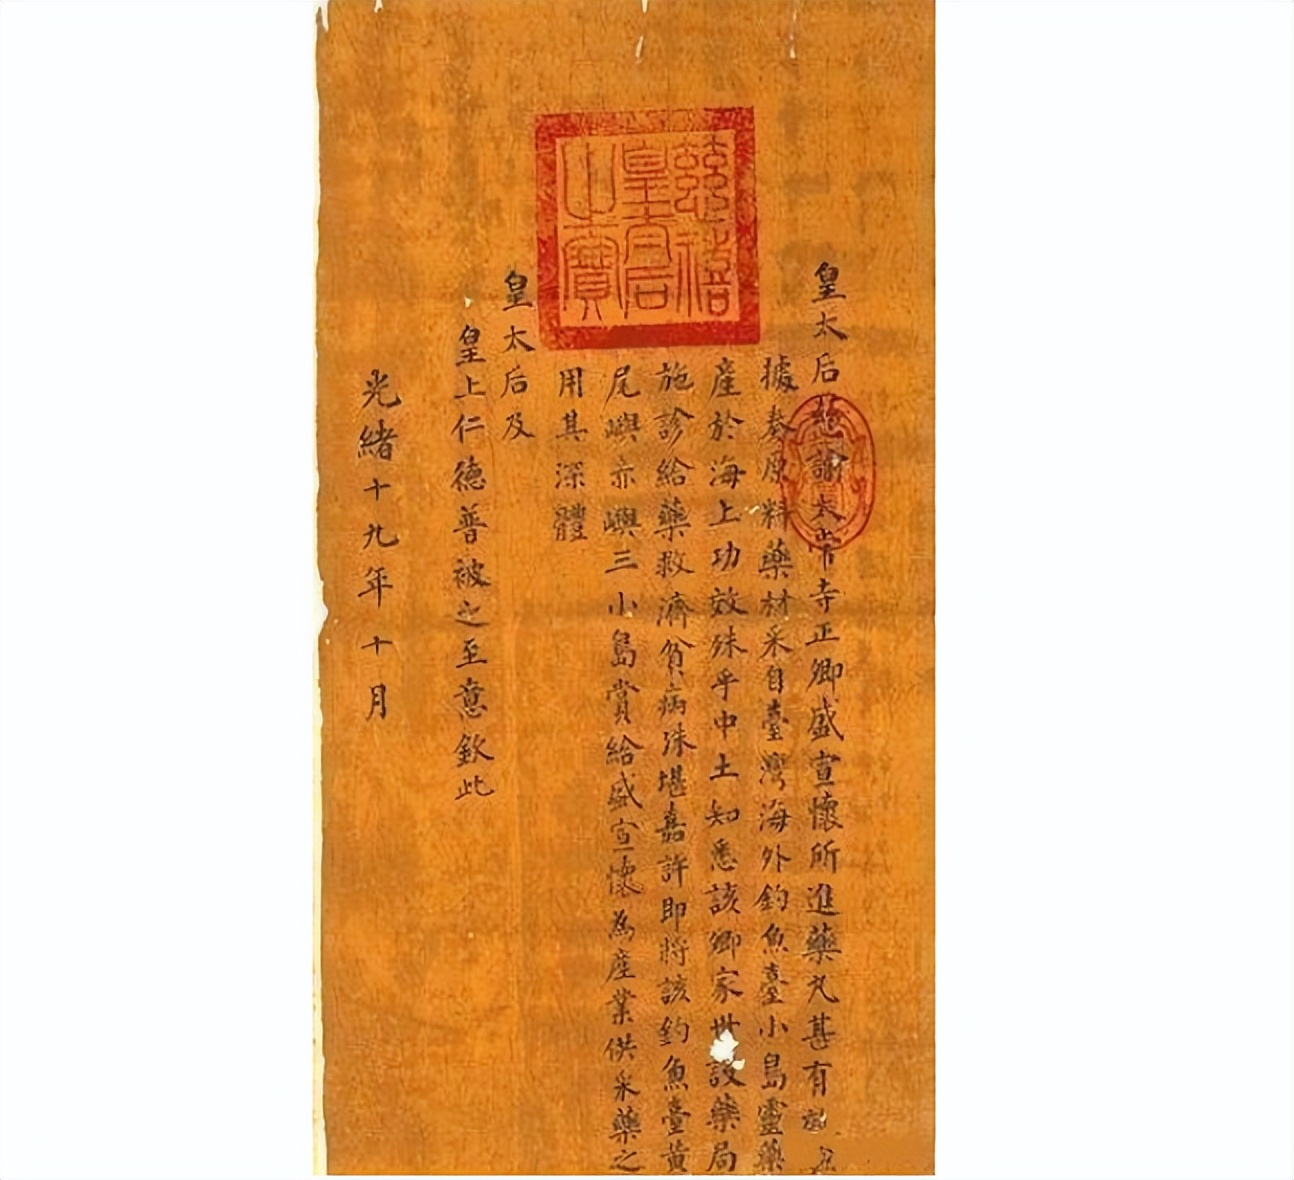 皇太后慈諭太常寺正卿盛宣懷所進藥丸甚有
據奏原料藥材采自臺灣海外釣魚臺小島靈藥
產於海上功效殊乎中土知悉該卿家世設藥局
施診給藥救濟貧病殊堪嘉許即將該釣魚臺黃
尾嶼赤嶼三小島賞給盛宣懷為產業供采藥之
用其深體
皇太后及
皇上仁德普被之至意欽此
光緒十九年十月
慈禧皇太后之寶